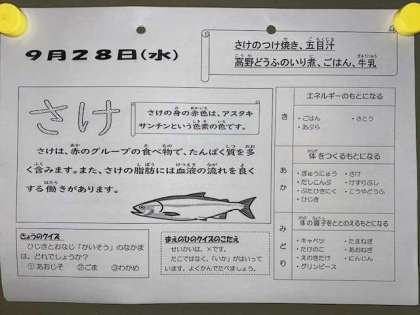 9月28日(水)
さけのつけ焼き、五目汁
高野どうふのいり煮、ごはん、牛乳
さけ
さけの身の赤色は、アスタキ
サンチンという色素の色です。
さけは、赤のグループの食べ物で、たんぱく質を多
く含みます。また、さけの脂肪には血液の流れを良く
する働きがあります。
きょうのクイズ
ひじきとおなじ「かいそう」のなかま
は、どれでしょうか?
①あおじそ ②ごま ③わかめ
まえのひのクイズのこたえ
せいかいは、×です。
たこではなく、「いか」がはいって
います。よくかんでたべましょう。
エネルギーのもとになる
き
・ごはん ・さとう
・あぶら
体をつくるもとになる
あか
・ぎゅうにゅう ・さけ
・だしこんぶ ・けずりぶし
・ぶたひきにく ・こうやどうふ
・ひじき
体の調子をととのえるもとになる
みどり
・キャベツ ・たまねぎ
・たけのこ ・あおねぎ
・えのきだけ ・にんじん
・グリンピース